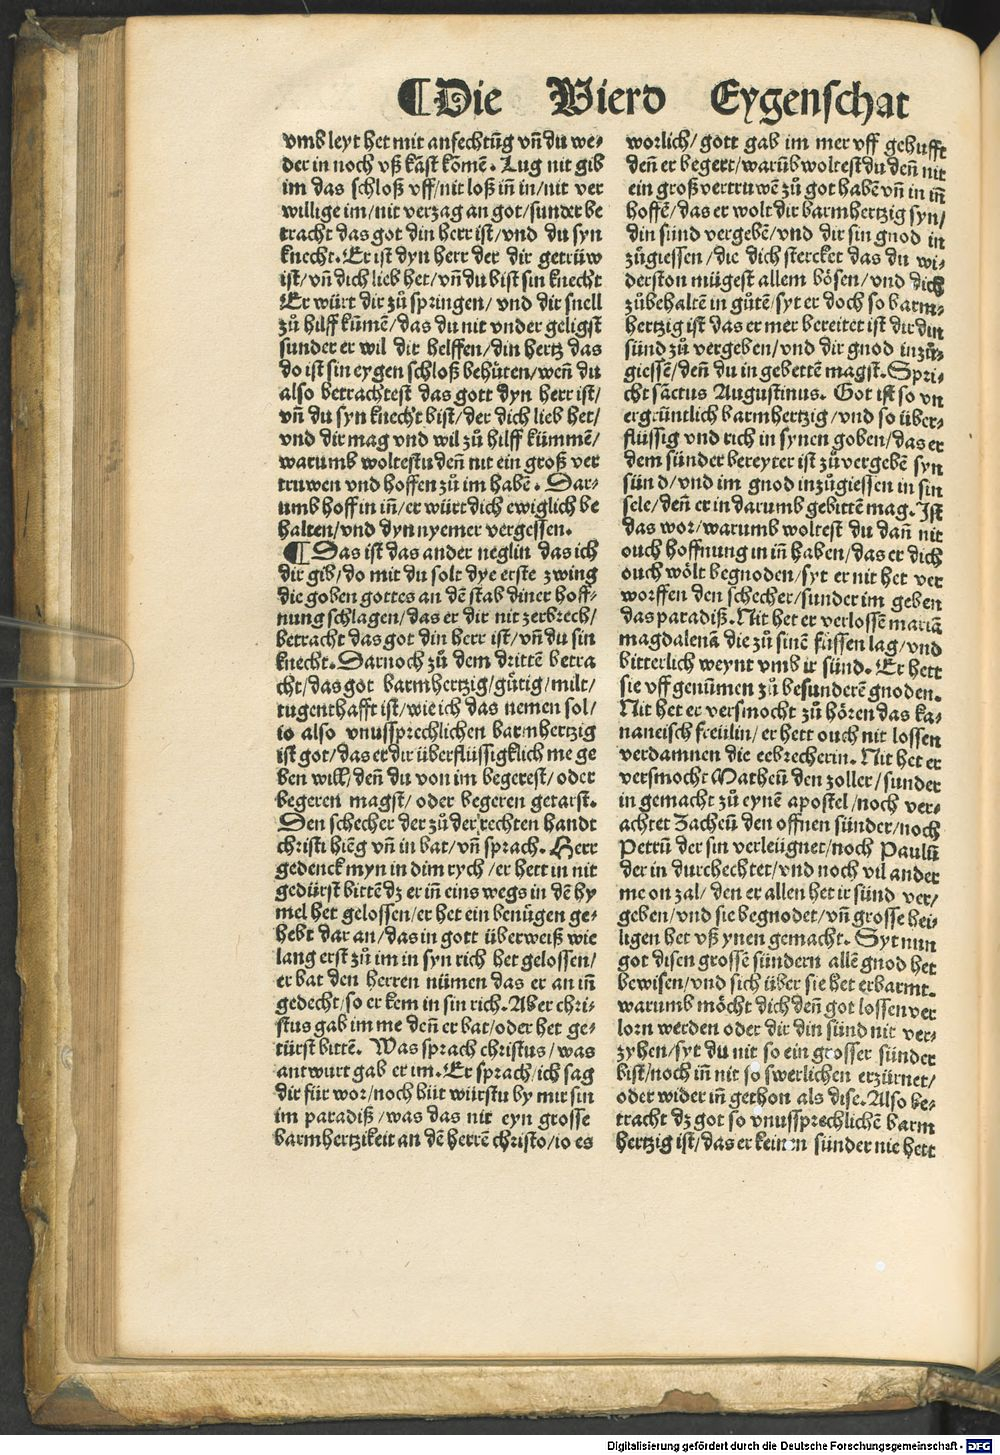 ¶Die Vierd Eygenschat
vmb leyt het mit anfechtūg vn̄ du we⸗
der in noch vß kāst kōmē. Lug nit gib
im das schloß vff/nit loß in̄ in/nit ver
willige im/nit verzag an got/sunder be
tracht das got din herr ist/vnd du syn
knecht. Er ist dyn herr der dir getrüw
ist/vn̄ dich lieb het/vn̄ du bist sin knecht
Er würt dir zů springen/vnd dir snell
zů hilff kūmē/das du nit vnder geligst
sunder er wil dir helffen/din hertz das
do ist sin eygen schloß behüten/wen̄ du
also betrachtest das gott dyn herr ist/
vn̄ du syn knecht bist/der dich lieb het/
vnd dir mag vnd wil zů hilff kümmē/
warumb woltestu den̄ nit ein groß ver
truwen vnd hoffen zů im habē. Dar⸗
umb hoff in in̄/er würt dich ewiglich be
halten/vnd dyn nyemer vergessen.
¶ Das ist das ander neglin das ich
dir gib/do mit du solt dye erste zwing
die goben gottes an dē stab diner hoff⸗
nung schlagen/das er dir nit zerbrech/
betracht das got din herr ist/vn̄ du sin
knecht. Darnoch zů dem drittē betra
cht/das got barmhertzig/gütig/milt/
tugenthafft ist/wie ich das nemen sol/
io also vnussprechlichen barmhertzig
ist got/das er dir überflüssigklich me ge
ben will/den̄ du von im begerest/oder
begeren magst/oder begeren getarst.
Den schecher der zů der rechten handt
christi hieng vn̄ in bat/vn̄ sprach. Herr
gedenck myn in dim rych/er hett in nit
gedürst bittē dz er in̄ eins wegs in dē hy
mel het gelossen/er het ein benügen ge⸗
hebt dar an/das in gott überweiß wie
lang erst zů im in syn rich het gelossen/
er bat den herren nümen das er an in̄
gedecht/so er kem in sin rich. Aber chri⸗
stus gab im me den̄ er bat/oder het ge⸗
türst bittē. Was sprach christus/was
antwurt gab er im. Er sprach/ich sag
dir für wor/noch hüt würstu by mir sin
im paradiß/was das nit eyn grosse
barmhertzikeit an dē herrē christo/io es
worlich/gott gab im mer vff gehufft
den̄ er begert/warūb woltest du den̄ nit
ein groß vertruwē zů got habē vn̄ in in̄
hoffē/das er wolt dir barmhertzig syn/
din sünd vergebē/vnd dir sin gnod in
zůgiessen/die dich stercket das du wi⸗
derston mügest allem bösen/vnd dich
zůbehaltē in gůtē/syt er doch so barm⸗
hertzig ist das er mer bereitet ist dir din
sünd zů vergeben/vnd dir gnod inzů⸗
giessē/den̄ du in gebettē magst. Spri⸗
cht sāctus Augustinus. Got ist so vn
ergrüntlich barmhertzig/vnd so über⸗
flüssig vnd rich in synen goben/das er
dem sünder bereyter ist zůvergebē syn
sünd/vnd im gnod inzůgiessen in sin
sele/den̄ er in darumb gebittē mag. Ist
das wor/warumb woltest du dan̄ nit
ouch hoffnung in in̄ haben/das er dich
ouch wölt begnoden/syt er nit het ver
worffen den schecher/sunder im geben
das paradiß. Nit het er verlossē mariā
magdalenā die zů sinē füssen lag/vnd
bitterlich weynt vmb ir sünd. Er hett
sie vff genūmen zů besunderē gnoden.
Nit het er versmocht zů hören das ka⸗
naneisch freülin/er hett ouch nit lossen
verdamnen die eebrecherin. Nit het er
versmocht Matheū den zoller/sunder
in gemacht zů eynē apostel/noch ver⸗
achtet Zacheū den offnen sünder/noch
Petrū der sin verleügnet/noch Paulū
der in durchechtet/vnd noch vil ander
me on zal/den er allen het ir sünd ver/
geben/vnd sie begnodet/vn̄ grosse hei⸗
ligen het vß ynen gemacht. Syt nun
got disen grossē sündern allē gnod het
bewisen/vnd sich über sie het erbarmt.
warumb möcht dich den̄ got lossen ver
lorn werden oder dir din sünd nit ver⸗
zyhen/syt du nit so ein grosser sünder
bist/noch in̄ nit so swerlichen erzürnet/
oder wider in̄ gethon als dise. Also be⸗
tracht dz got so vnussprechlichē barm
hertzig ist/das er keinen sünder nie hett
Digitalisierung gefördert durch die Deutsche Forschungsgemeinschaft - DFG